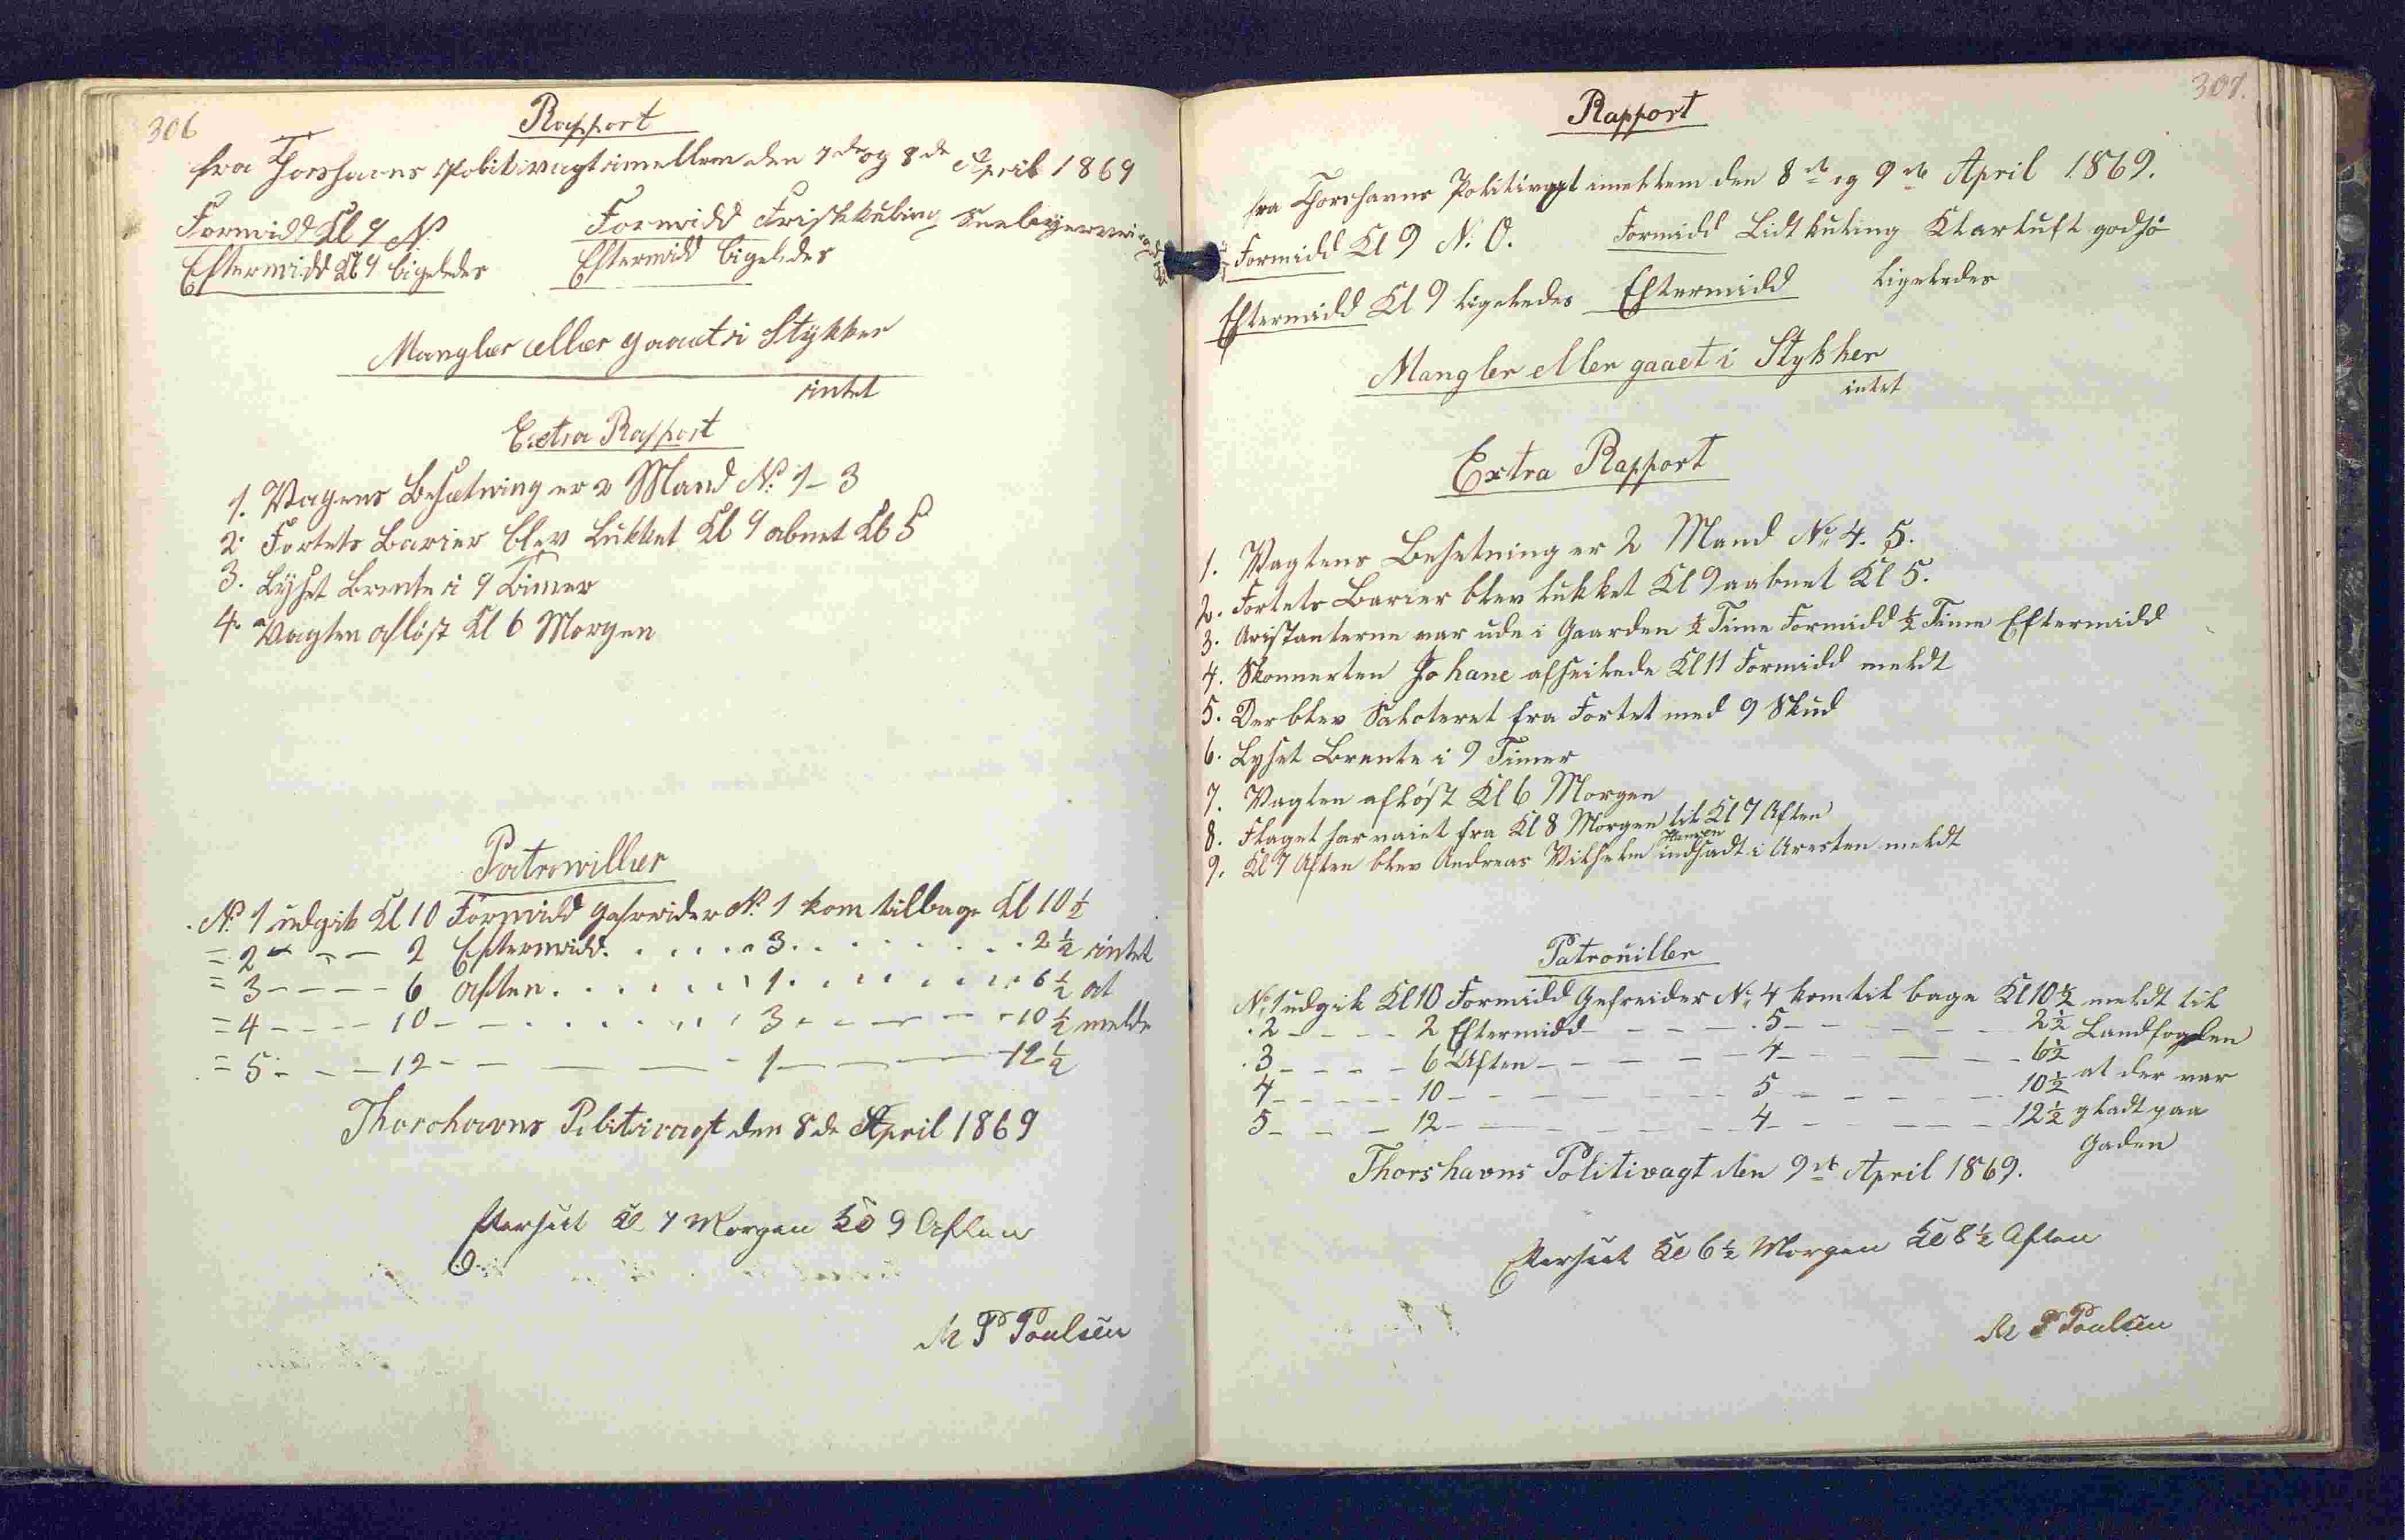 306
Rapport
fra Thorshavns Politivagt imellem den 7de og 8de April 1869
Formidd Kl 9 N. Formidd Friskkuling
Eftermidd Kl 9 ligeledes Eftermidd ligeledes
Mangler eller gaaet i Stykker
intet
Extra Rapport
1. Vagens Besætning er 2 Mand No 1-3
2. Fortets Barier blev lukket Kl 9 abnet Kl 5
3. Lyset brente i 9 Timer
4. Vagten afløst Kl 6 Morgen
Patrowiller
No 1 udgik Kl 10 Formidd Gefreider No 1 kom tilbage Kl 10½
= 2 - - - 2 Eftermidd. . . . . . 3. . . . . . . . 2½ intet
= 3 - - - - 6 Aften. . . . . . 1. . . . . . . 6½ at
= 4 - - - - 10 - - . . . . . . 3 - - - - - 10½ melde
= 5 - - - 12 - - - - 1 - - - 12½
Thorshavns Politivagt den 8de April 1869
Efterseet Kl 7 Morgen Kl 9 Aften
M P Poulsen
307.
Rapport
fra Thorshavns Politivagt imellem den 8de og 9de April 1869.
Formidd Kl 9 N. O. Formidd Lidt kuling Klarluft godsø
Eftermidd Kl 9 ligeledes Eftermidd ligeledes
Mangler eller gaaet i Stykker
intet
Extra Rapport
1. Vagtens Besetning er 2 Mand No 4. 5.
2. Fortets Barier blev lukket Kl 9 aabnet Kl 5.
3. Aristanterne var ude i Gaarden ½ Time Formidd ½ Time Eftermidd
4. Skonnerten Johane afseilede Kl 11 Formidd meldt
5. Der blev Saloteret fra Fortet med 9 Skud
6. Lyset Brente i 9 Timer
7. Vagten afløst Kl 6 Morgen
8. Flaget har vaiet fra Kl 8 Morgen til Kl 7 Aften
9. Kl 7 Aften blev Andreas Vilhelm Hansen indsadt i Aresten meldt
Patrouiller
No 1 udgik Kl 10 Formidd Gefreider No 4 kom tilbage Kl 10½ meldt til
. 2 - - - - 2 Eftermidd - - - - . 5 - - - - - 2½ Landfogden
. 3 - - - - 6 Aften - - - - 4 - - - - - 6½ at der var
4 - - - - - 10 - - - - - - 5 - - - - - 10½ gladt paa
5 - - - 12 - - - - - - 4 - - - - - 12½ Gaden
Thorshavns Politivagt den 9de April 1869.
Efterseet Kl 6½ Morgen Kl 8½ Aften
M P Poulsen